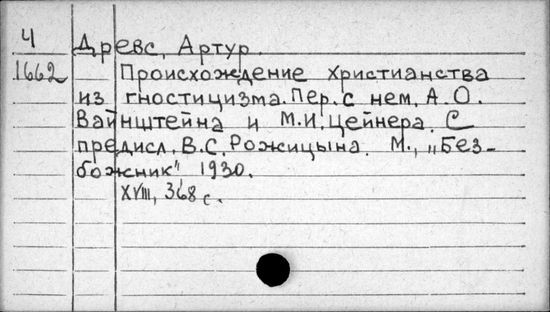 4 Древс, Артур.
1662 Происхождение христианства
из гностицизма. Пер. с нем. А. О.
Вайнштейна и М.И. Цейнера. С
предисл. В. С. Рожицына. М., „Без-
божник", 1930.
XVIII, 368 с.